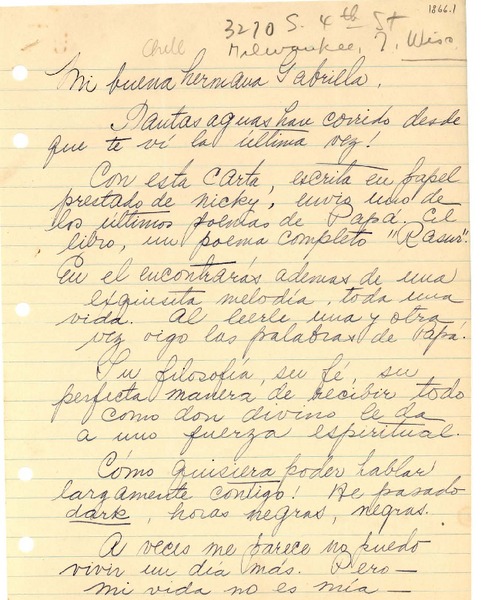 1866.1
3270 S. 4th St
Chile
Milwaukee, 7, Wisc
Mi buena hermana Gabriella,
Tantas aguas han corrido desde
que te ví la última vez!
Con esta carta, escrita en papel
prestado de nicky, envío uno de
los últimos poemas de Papá. El
libro, un poema completo "Rasur".
En el encontrarás ademas de una
exquisita melodía, toda una
vida. Al leerle una y otra
vez oigo las palabras de Papá.
Su filosofía, su fé, su
perfecta manera de recibir todo
como don divino le da
a uno fuerza espiritual.
Cómo quisiera poder hablar
largamente contigo! He pasado
dark, horas negras, negras.
A veces me parece no puedo
vivir un día más. Pero —
mi vida no es mía —